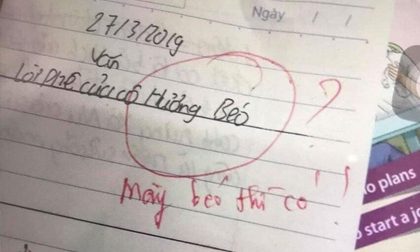 Ngày / /
27/3/2019
Văn
Lời phê của cô Hường Béo
?
Mày béo thì có !!
o plans
start a jo